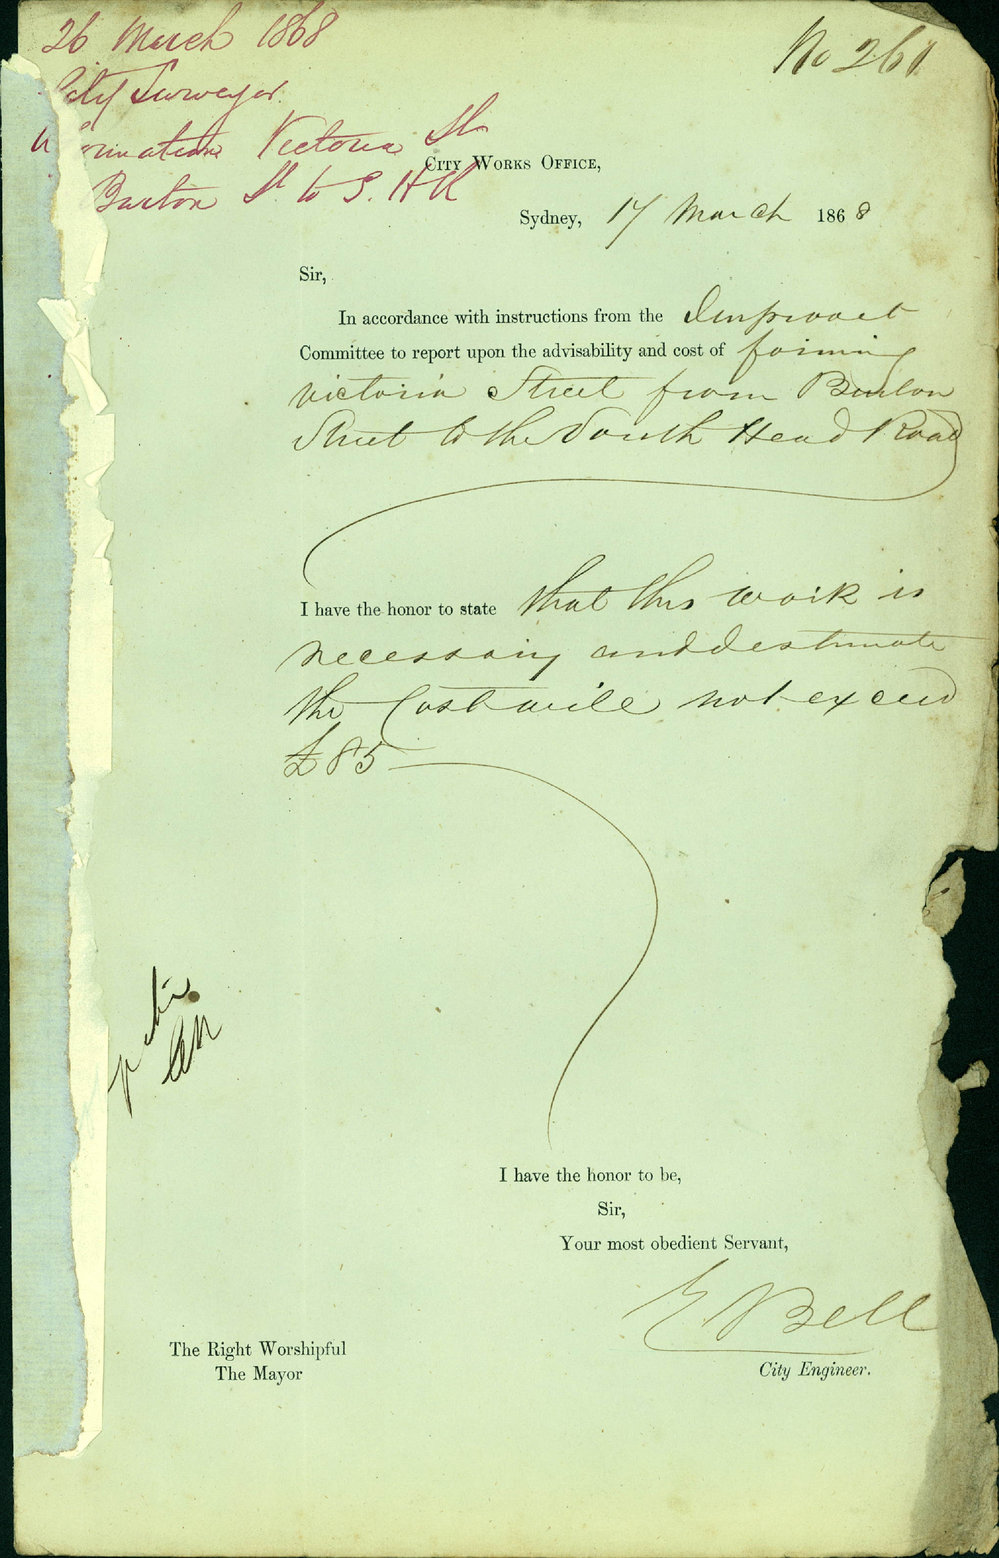 26 March 1868
City Surveyor
ormation Victoria St
Burton St to S. H R
No 261
City Works Office,
Sydney, 17 March 1868
Sir,
In accordance with instructions from the Improvet
Committee to report upon the advisability and cost of forming
Victoria Street from Burton
Street to the South Head Road
I have the honor to state that this work is
necessary and I estimate
the Cost will not exceed
£85
I have the honor to be,
Sir,
Your most obedient Servant,
E Bell
City Engineer.
The Right Worshipful
The Mayor